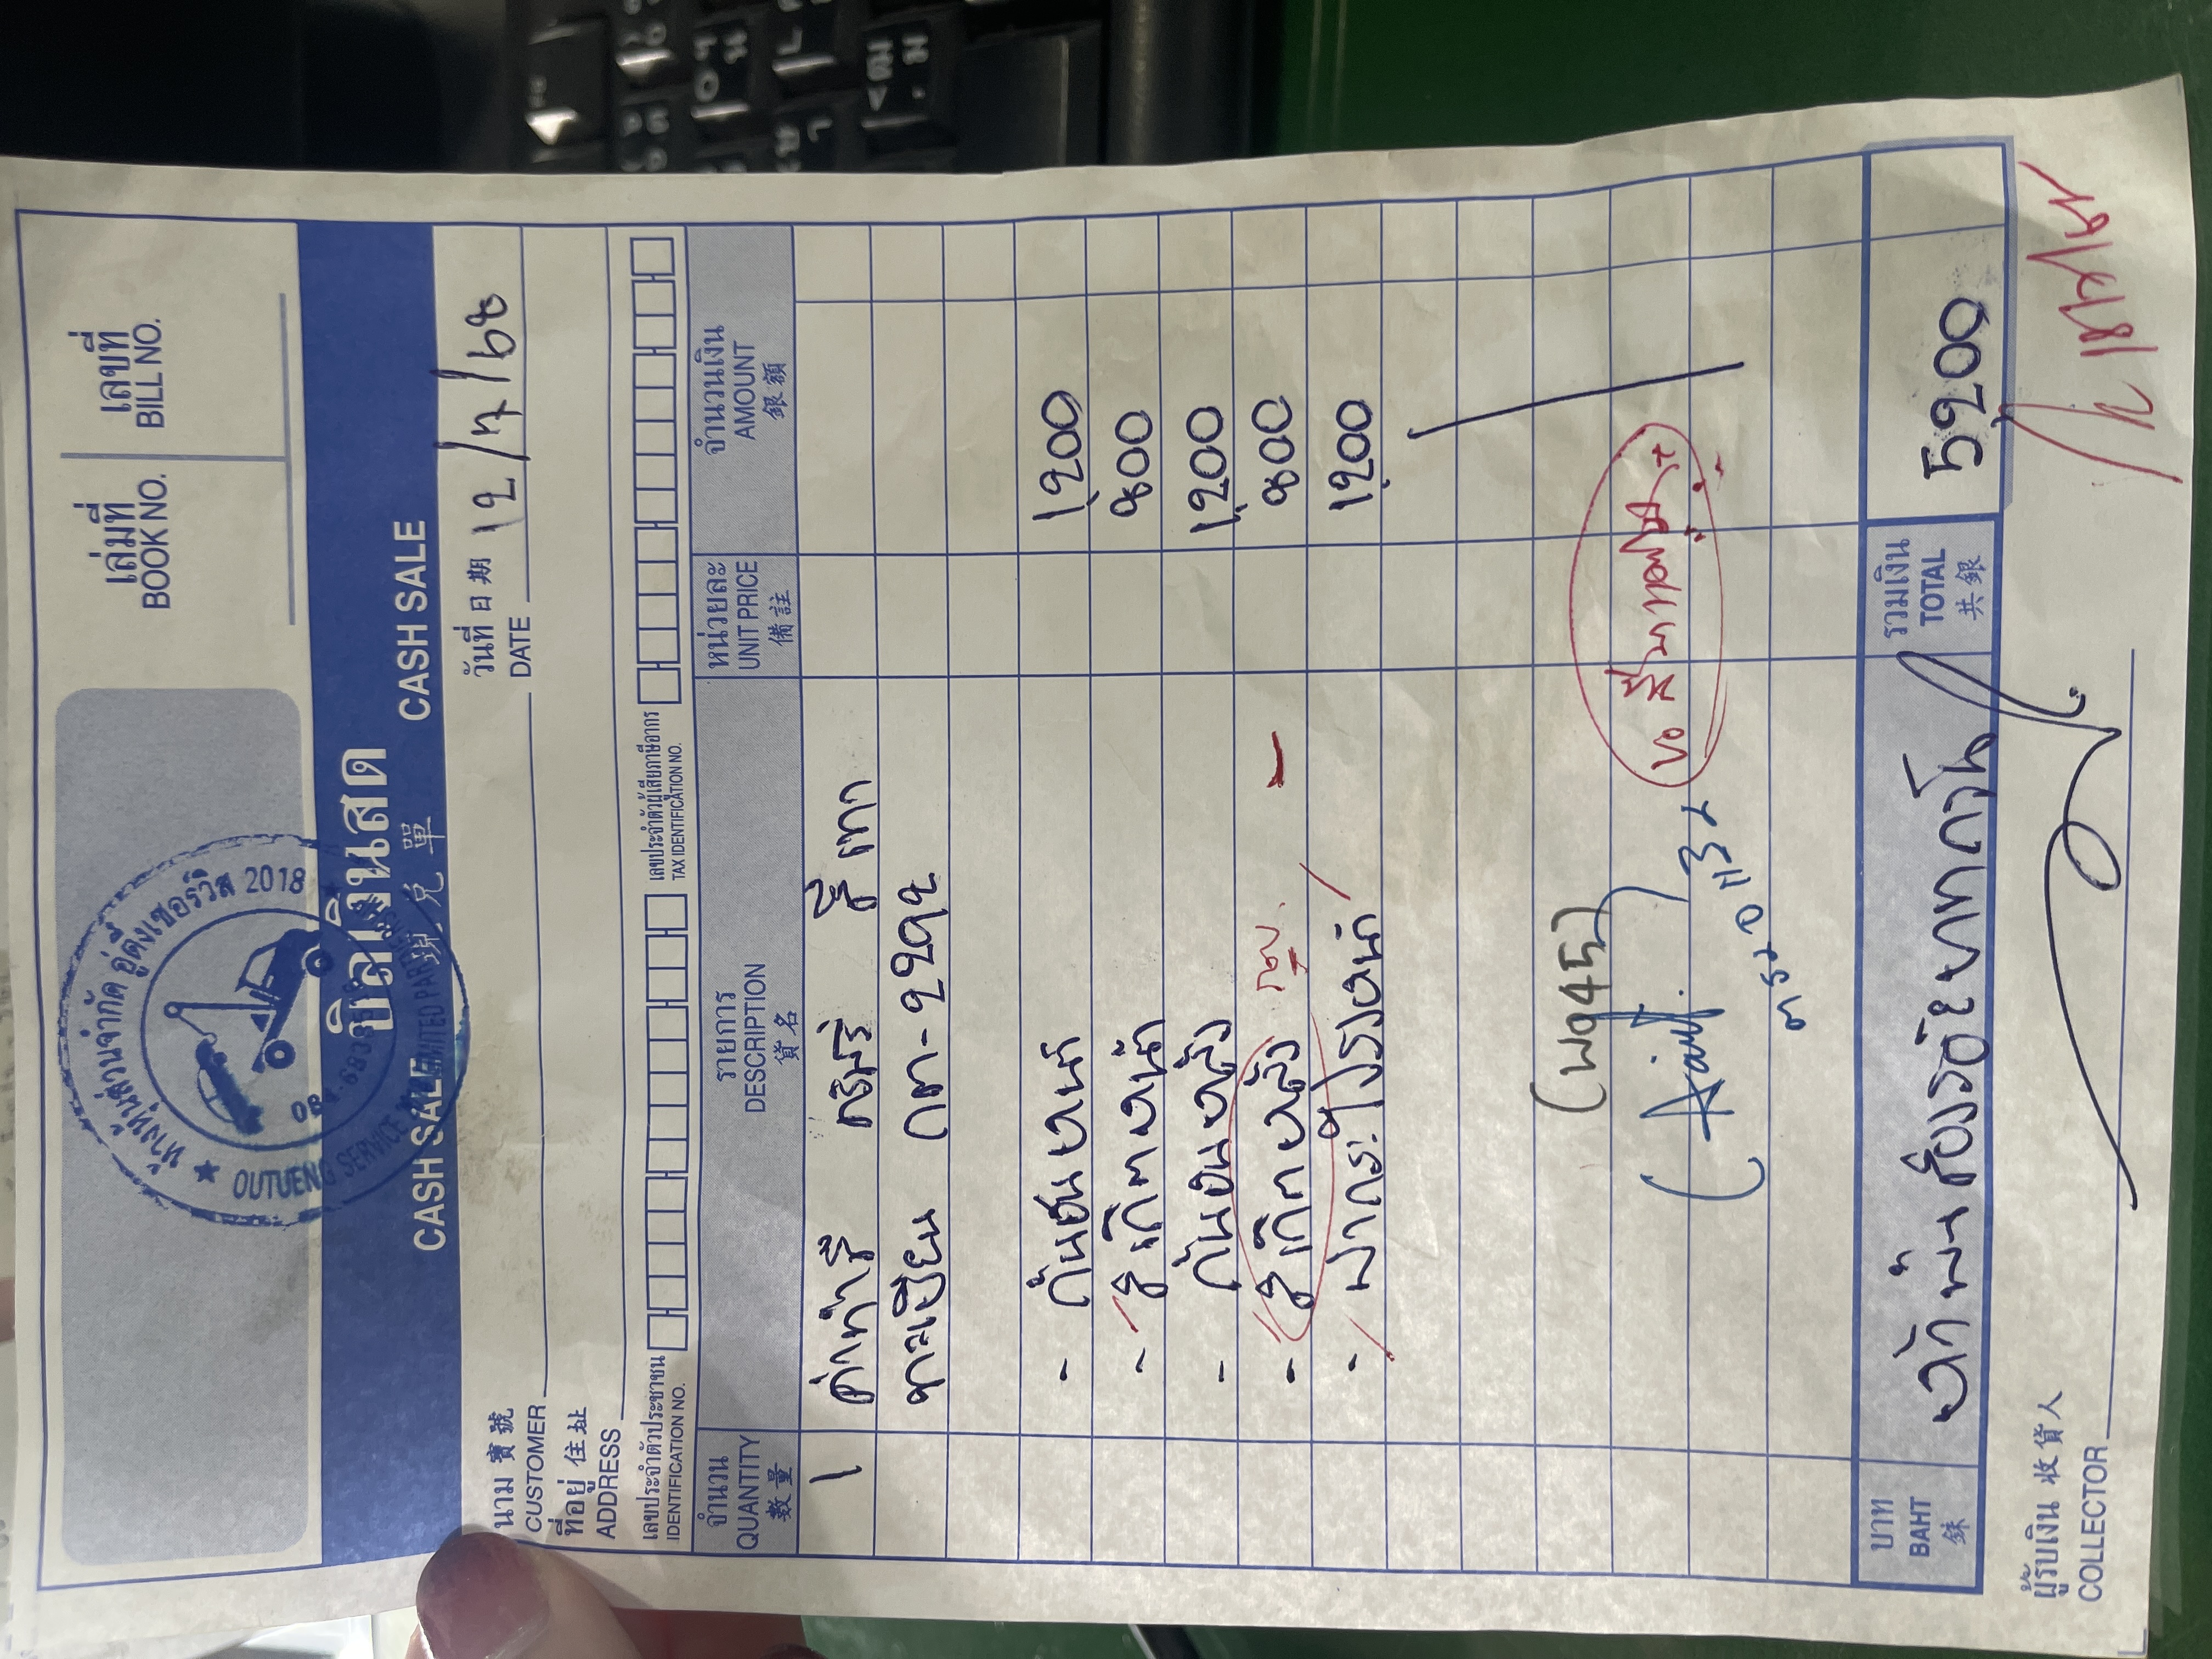 เล่มที่ เลขที่
BOOK NO. BILL NO.
ห้างหุ้นส่วนจำกัด อู่ตึ๋งเซอร์วิส 2018
OUTUENG SERVICE LIMITED PARTNERSHIP
บิลเงินสด
CASH SALE CASH SALE
นาม 寶號 วันที่ 日期 12/7/68
CUSTOMER DATE
ที่อยู่ 住址
ADDRESS
เลขประจำตัวประชาชน เลขประจำตัวผู้เสียภาษีอากร
IDENTIFICATION NO. TAX IDENTIFICATION NO.
จำนวน รายการ หน่วยละ จำนวนเงิน
QUANTITY DESCRIPTION UNIT PRICE AMOUNT
數量 貨名 備註 銀額
1 ค่าทำสี สี เทา
ทะเบียน กต-2292
- กันชนหน้า 1,200
- สเกิตหน้า 800
- กันชนหลัง 1,200
- สเกิตหลัง 800
- ฝากระโปรงหน้า 1,200
(พ945)
บาท ห้าพันสองร้อยบาทถ้วน รวมเงิน 5,200
BAHT TOTAL
銖 共銀
ผู้รับเงิน 收貨人
COLLECTOR